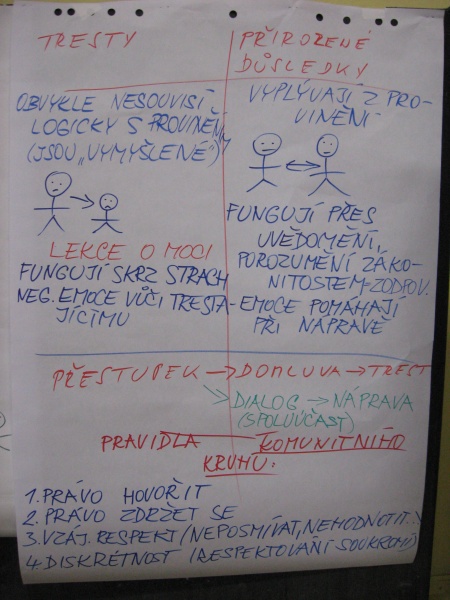 TRESTY
OBVYKLE NESOUVISÍ
LOGICKY S PROVINĚNÍM
(JSOU „VYMYŠLENÉ")
LEKCE O MOCI
FUNGUJÍ SKRZ STRACH
NEG. EMOCE VŮČI TRESTA-
JÍCÍMU
PŘIROZENÉ
DŮSLEDKY
VYPLÝVAJÍ Z PRO-
VINĚNÍ
FUNGUJÍ PŘES
UVĚDOMĚNÍ,
POROZUMĚNÍ ZÁKO-
NITOSTEM-ZODPOV.
EMOCE POMÁHAJÍ
PŘI NÁPRAVĚ
PŘESTUPEK → DOMLUVA → TREST
DIALOG → NÁPRAVA
(SPOLUÚČAST)
PRAVIDLA KOMUNITNÍHO
KRUHU:
1. PRÁVO HOVOŘIT
2. PRÁVO ZDRŽET SE
3. VZÁJ. RESPEKT (NEPOSMÍVAT, NEHODNOTIT..)
4. DISKRÉTNOST (RESPEKTOVÁNÍ SOUKROMÍ)